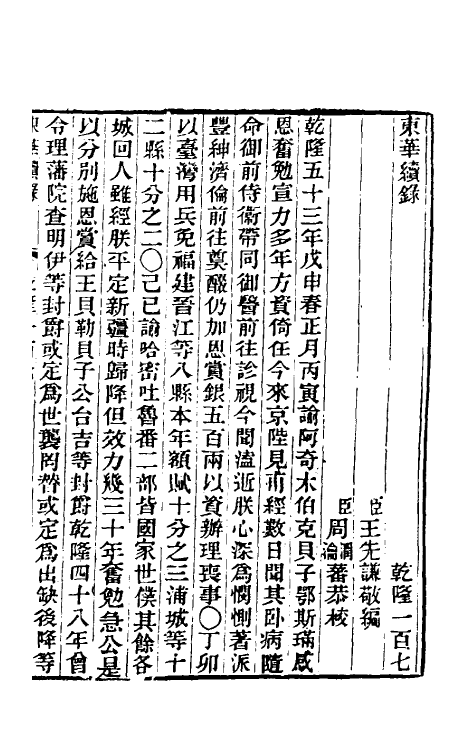 東華續錄 乾隆一百七
臣王先謙敬編
臣周潤蕃瀹蕃恭校
乾隆五十三年戊申春正月丙寅諭阿奇木伯克貝子鄂斯璊感
恩奮勉宣力多年方資倚任今來京陛見甫經數日聞其卧病隨
命御前侍衞帶同御醫前往診視今聞溘逝朕心深爲憫惻著派
豐紳濟倫前往奠醊仍加恩賞銀五百兩以資辦理喪事〇丁卯
以臺灣用兵免福建晉江等八縣本年額賦十分之三浦城等十
二縣十分之二〇己巳諭哈密吐魯番二部皆國家世僕其餘各
城回人雖經朕平定新疆時歸降但效力幾三十年奮勉急公是
以分別施恩賞給王貝勒貝子公台吉等封爵乾隆四十八年曾
令理藩院查明伊等封爵或定爲世襲罔替或定爲出缺後降等
東華續錄